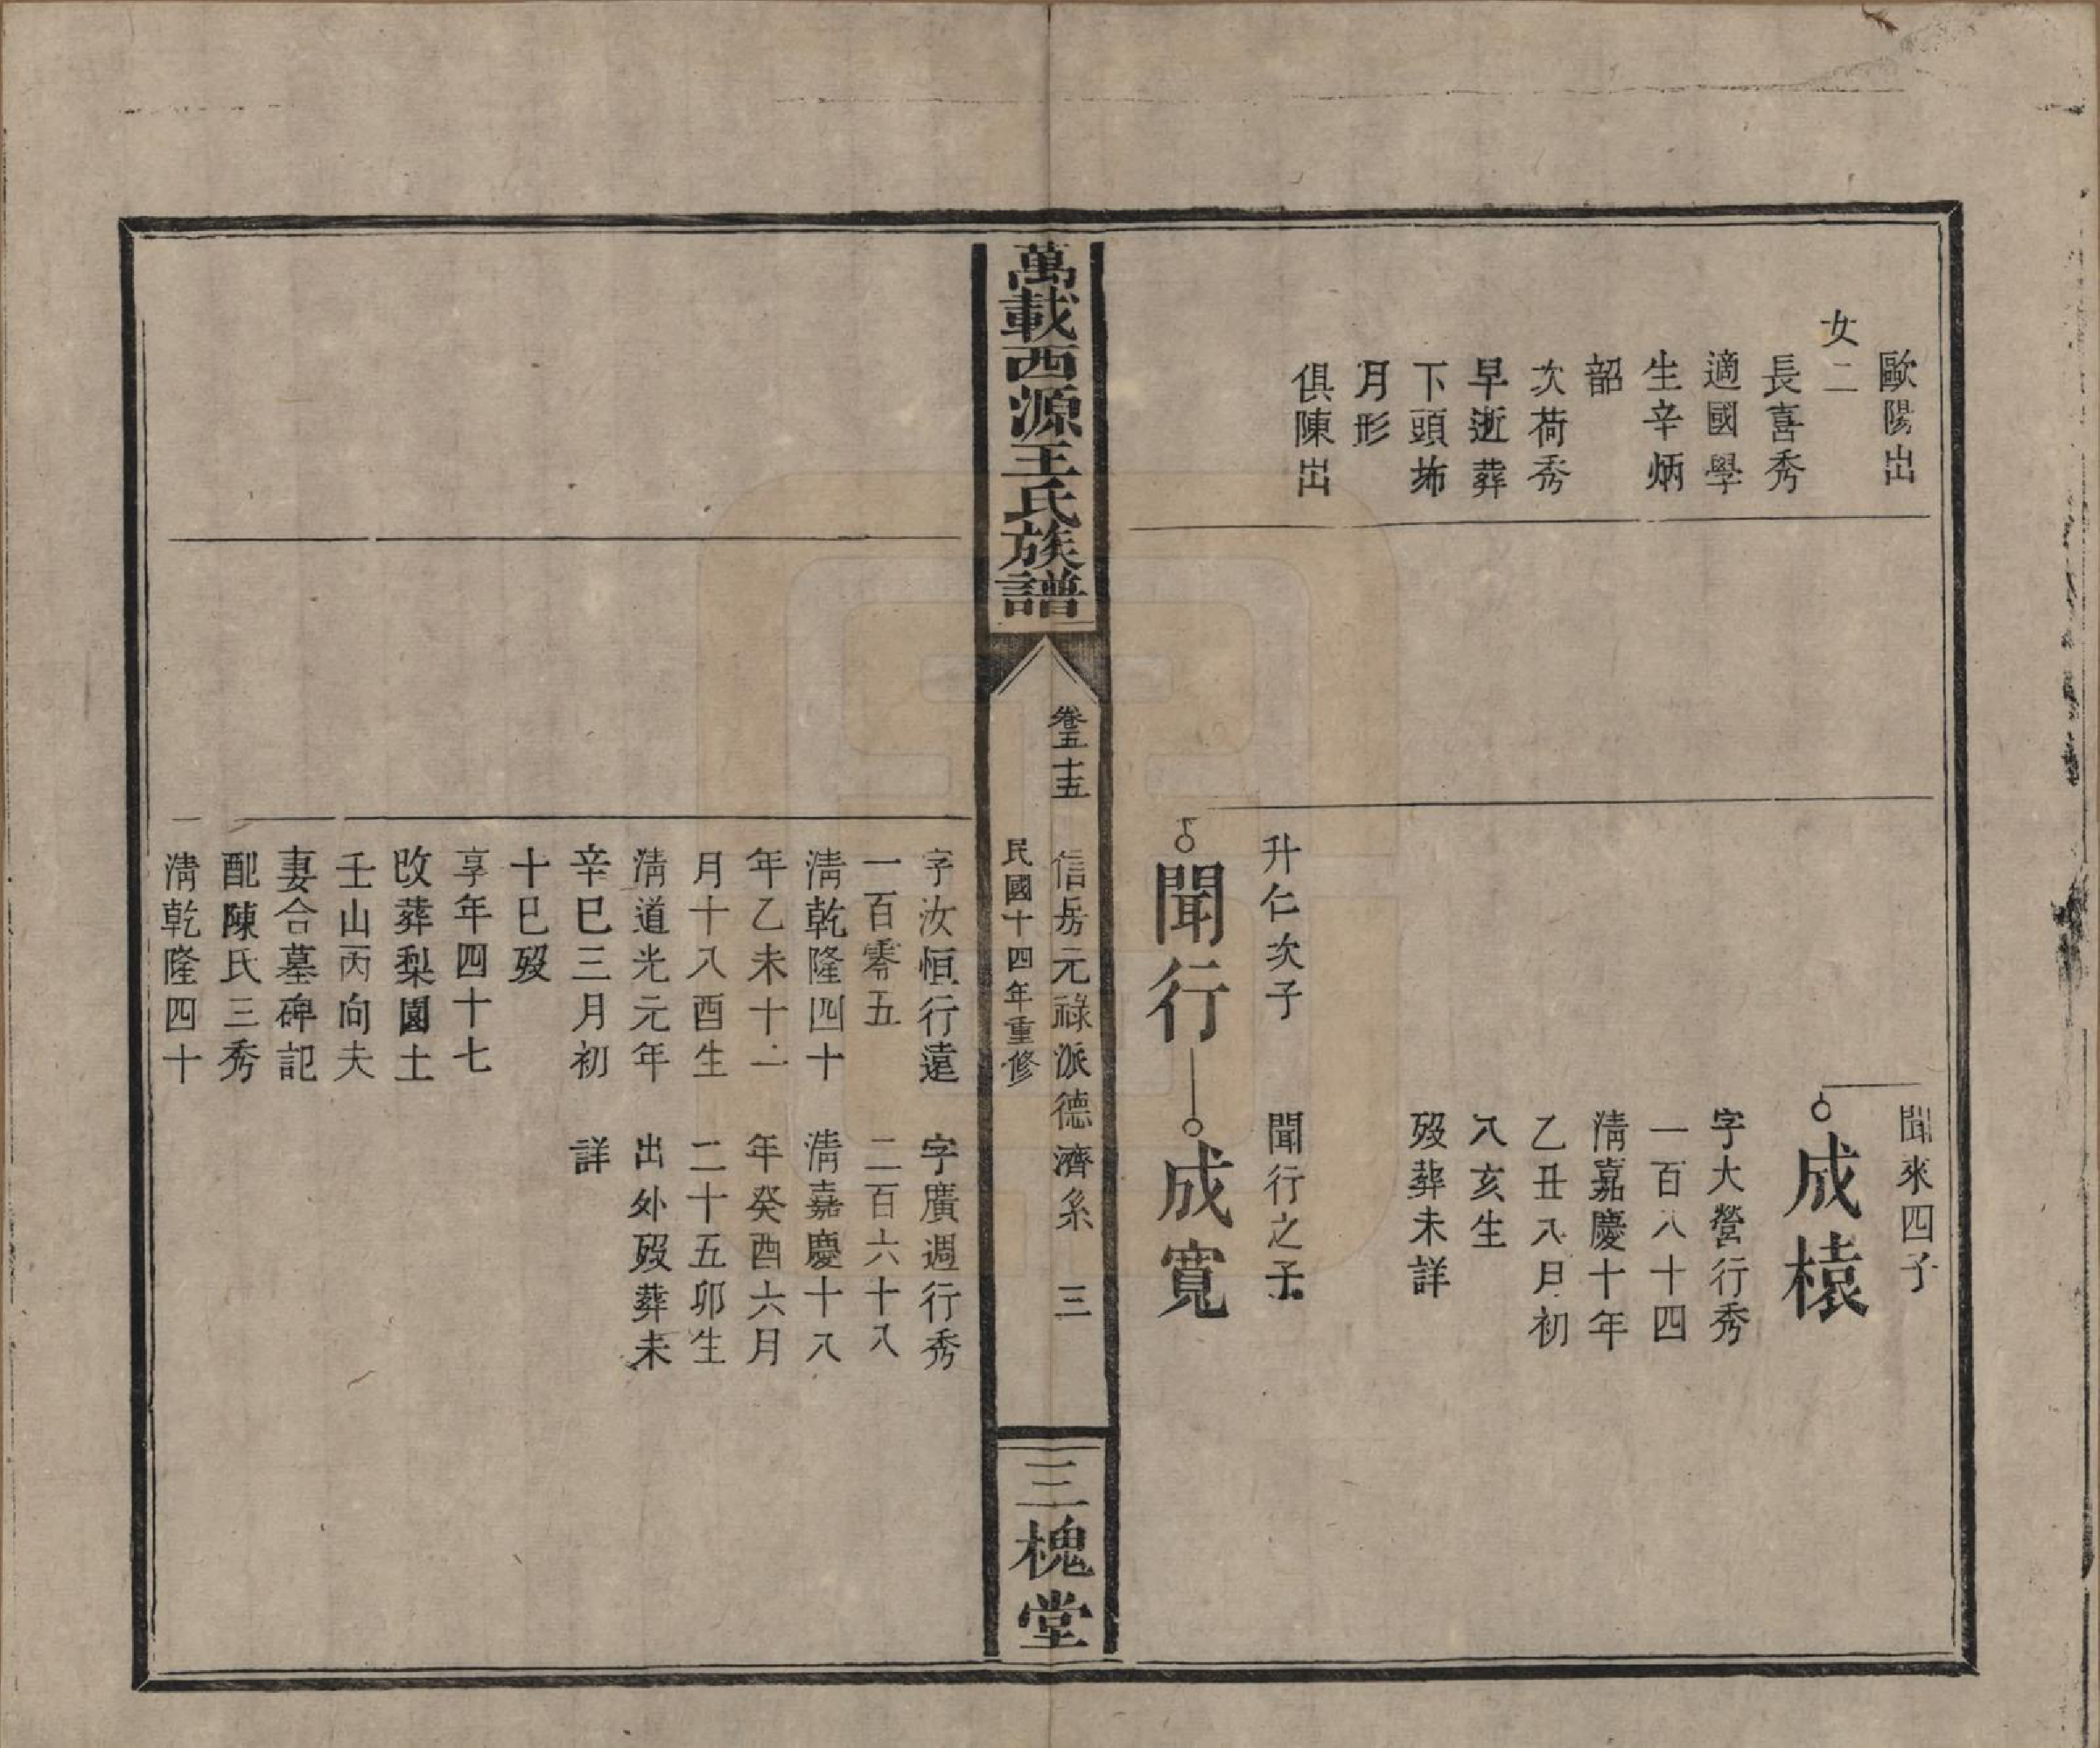 歐陽出
女二
長喜秀
適國學
生辛炳
韶
次荷秀
早逝葬
下頭㘵
月形
俱陳出
聞來四子
成榬
字大營行秀
一百八十四
淸嘉慶十年
乙丑八月初
八亥生
歿葬未詳
升仁次子
聞行
聞行之子
成寬
萬載西源王氏族譜
卷五十五
信房元祿派德濟系 三
民國十四年重修
三槐堂
字汝恒行遠
一百零五
淸乾隆四十
年乙未十一
月十八酉生
淸道光元年
辛巳三月初
十巳歿
享年四十七
改葬梨園土
壬山丙向夫
妻合墓碑記
配陳氏三秀
淸乾隆四十
字廣週行秀
二百六十八
淸嘉慶十八
年癸酉六月
二十五卯生
出外歿葬未
詳